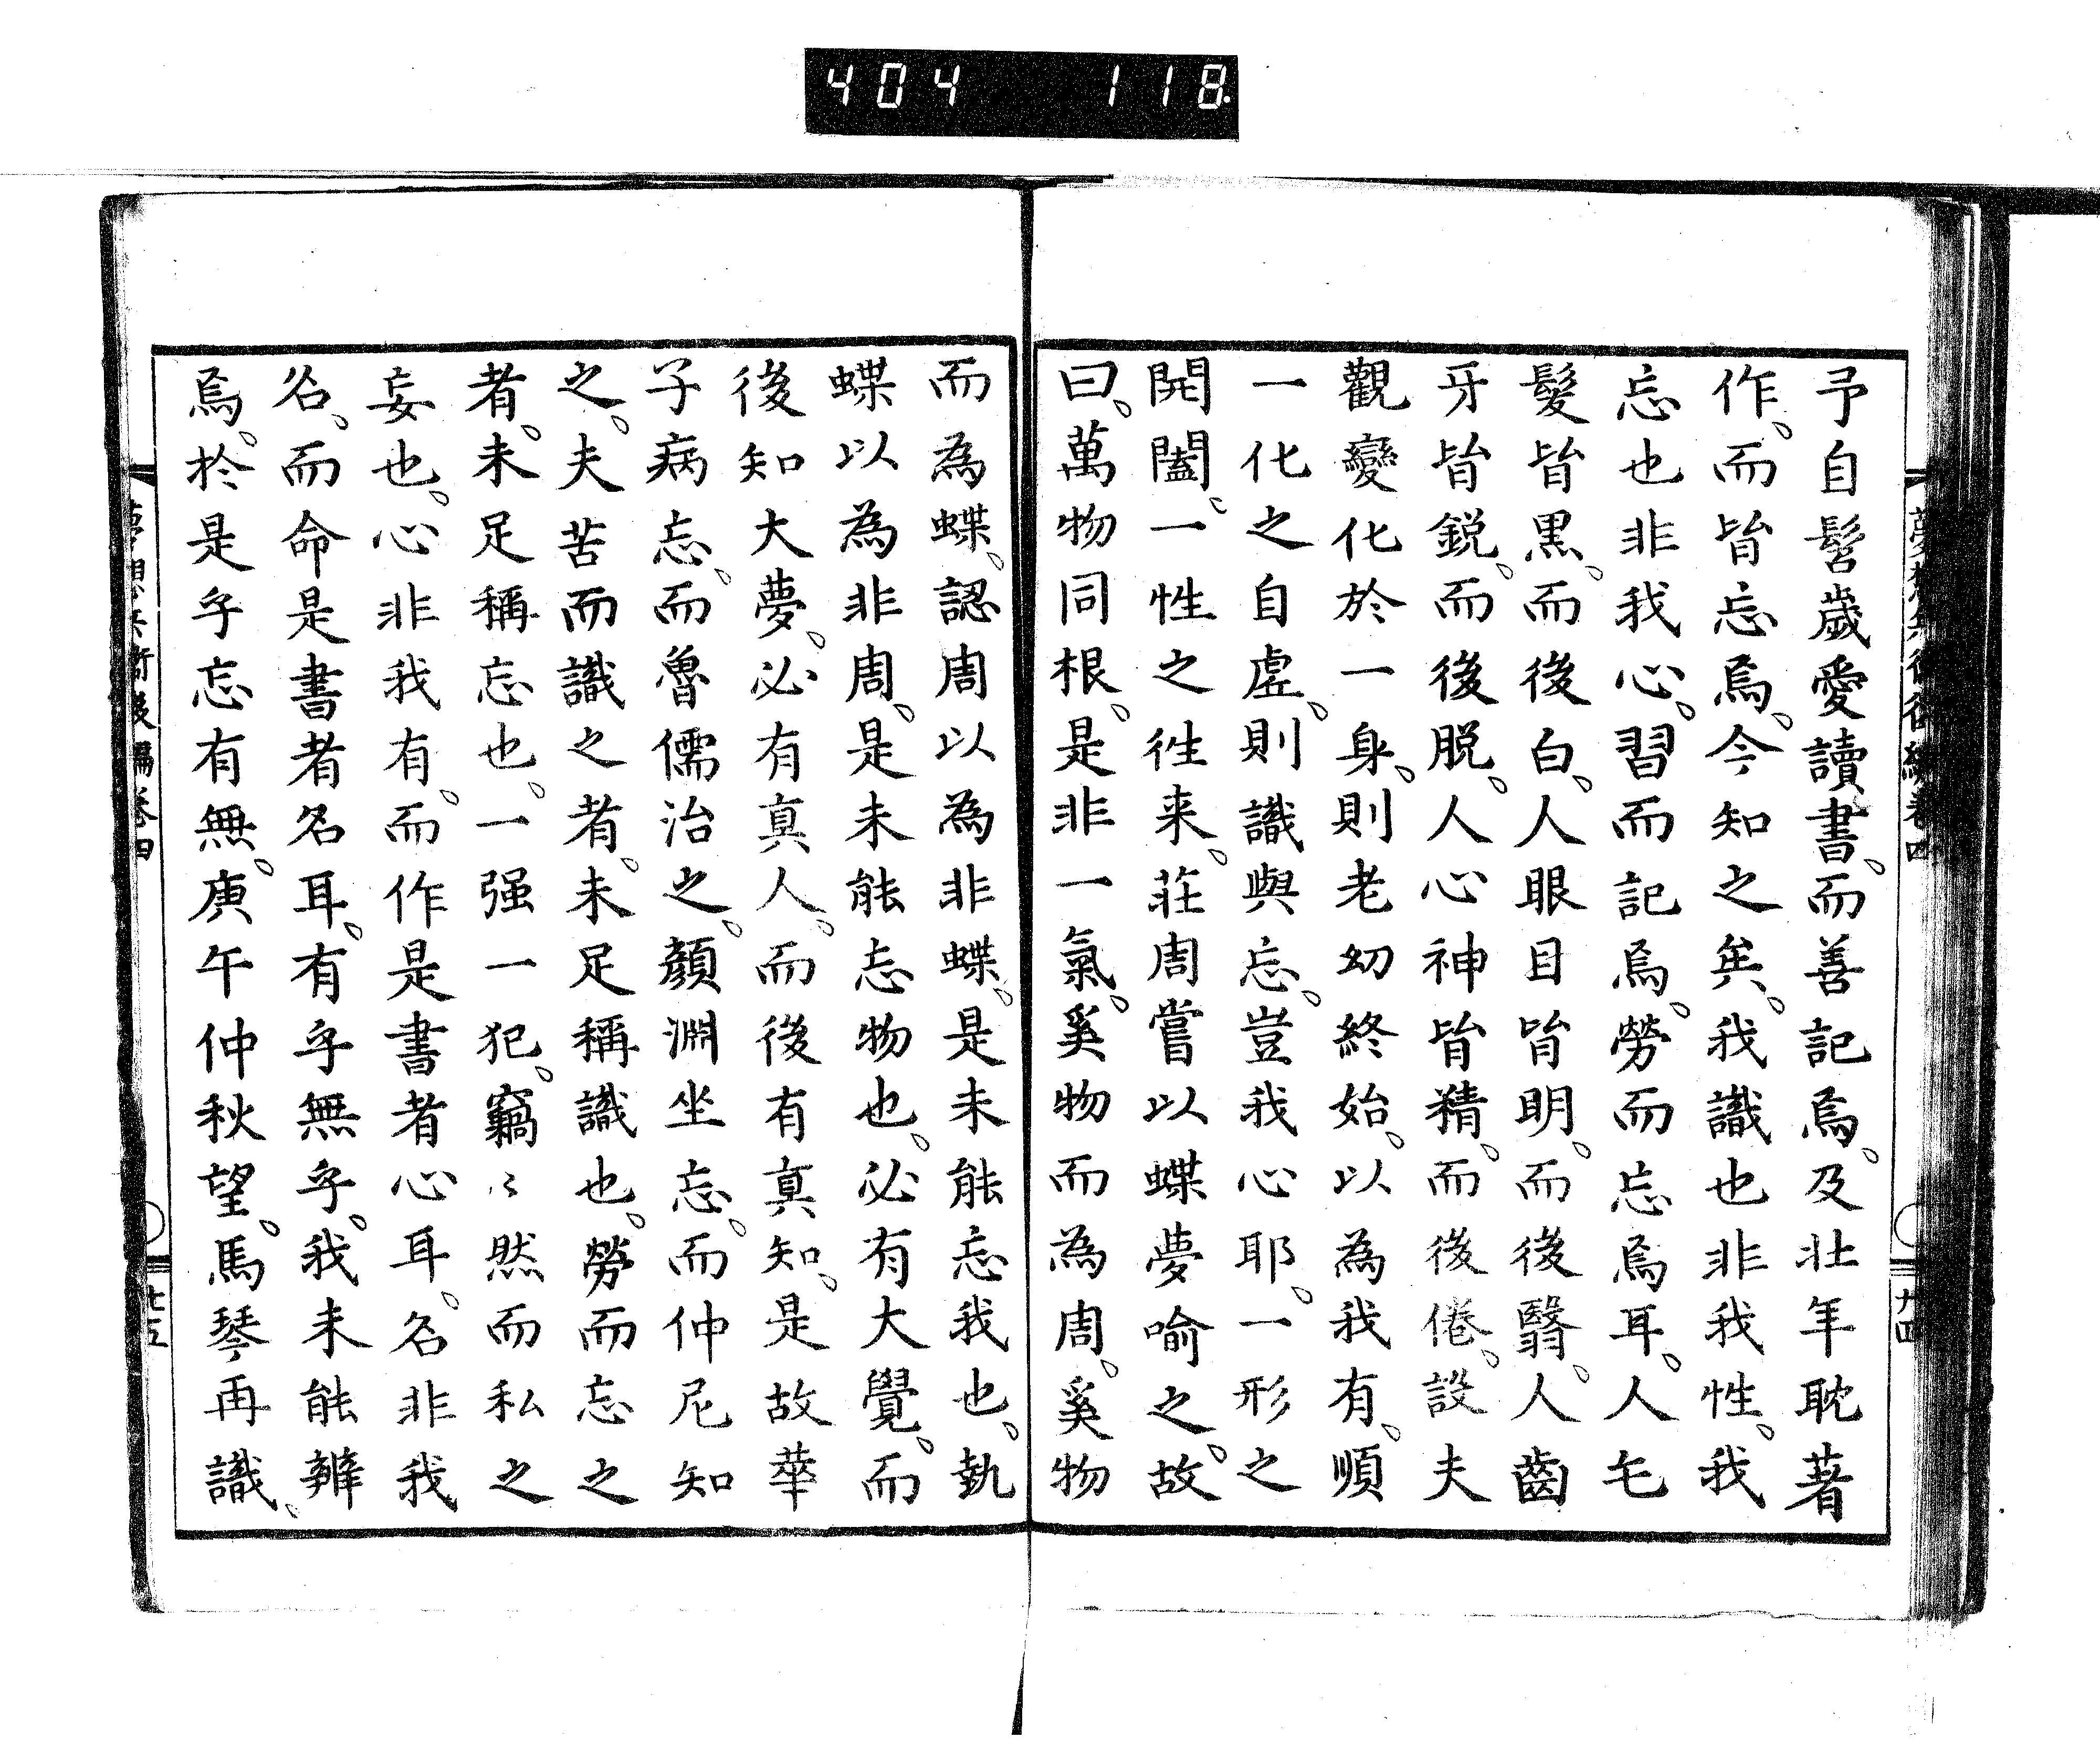 404 118
予自髫歲愛讀書、而善記焉、及壮年耽著
作、而皆忘焉、今知之矣、我識也非我性、我
忘也非我心、習而記焉、勞而忘焉耳、人毛
髮皆黒、而後白、人眼目皆明、而後翳、人齒
牙皆鋭、而後脱、人心神皆精、而後倦、設夫
觀變化於一身、則老幼終始、以為我有、順
一化之自虚、則識與忘、豈我心耶、一形之
開闔、一性之徃来、荘周嘗以蝶夢喻之、故
曰、萬物同根、是非一氣、奚物而為周、奚物
而為蝶、認周以為非蝶、是未能忘我也、執
蝶以為非周、是未能忘物也、必有大覺、而
後知大夢、必有真人、而後有真知、是故華
子病忘、而魯儒治之、顏淵坐忘、而仲尼知
之、夫苦而識之者、未足稱識也、勞而忘之
者、未足稱忘也、一强一犯、竊〻然而私之
妄也、心非我有、而作是書者心耳、名非我
名、而命是書者名耳、有乎無乎、我未能辨
焉、於是乎忘有無、庚午仲秋望、馬琴再識、